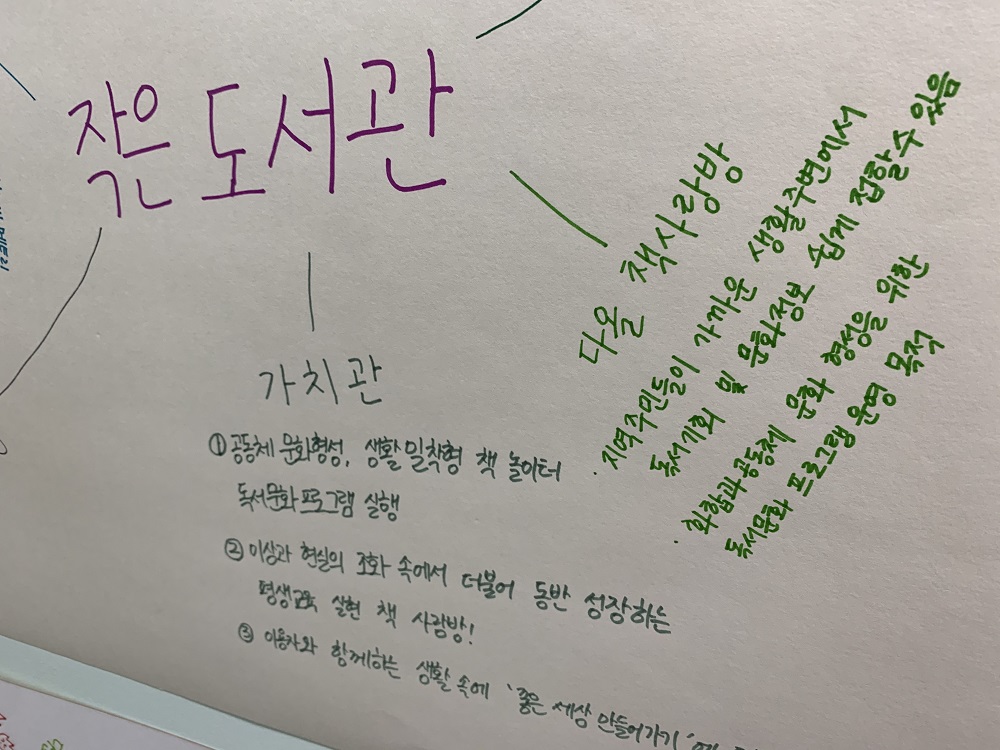 작은 도서관
가치관
① 공동체 문화형성, 생활밀착형 책 놀이터
독서문화프로그램 실행
② 이상과 현실의 조화 속에서 더불어 동반 성장하는
평생교육 실현 책 사랑방!
③ 이용자와 함께하는 생활 속에 '좋은 세상 만들어가기'
다올 책사랑방
· 지역주민들이 가까운 생활주변에서
독서기회 및 문화정보 쉽게 접할 수 있음
· 화합과 공동체 문화 형성을 위한
독서문화 프로그램 운영 목적